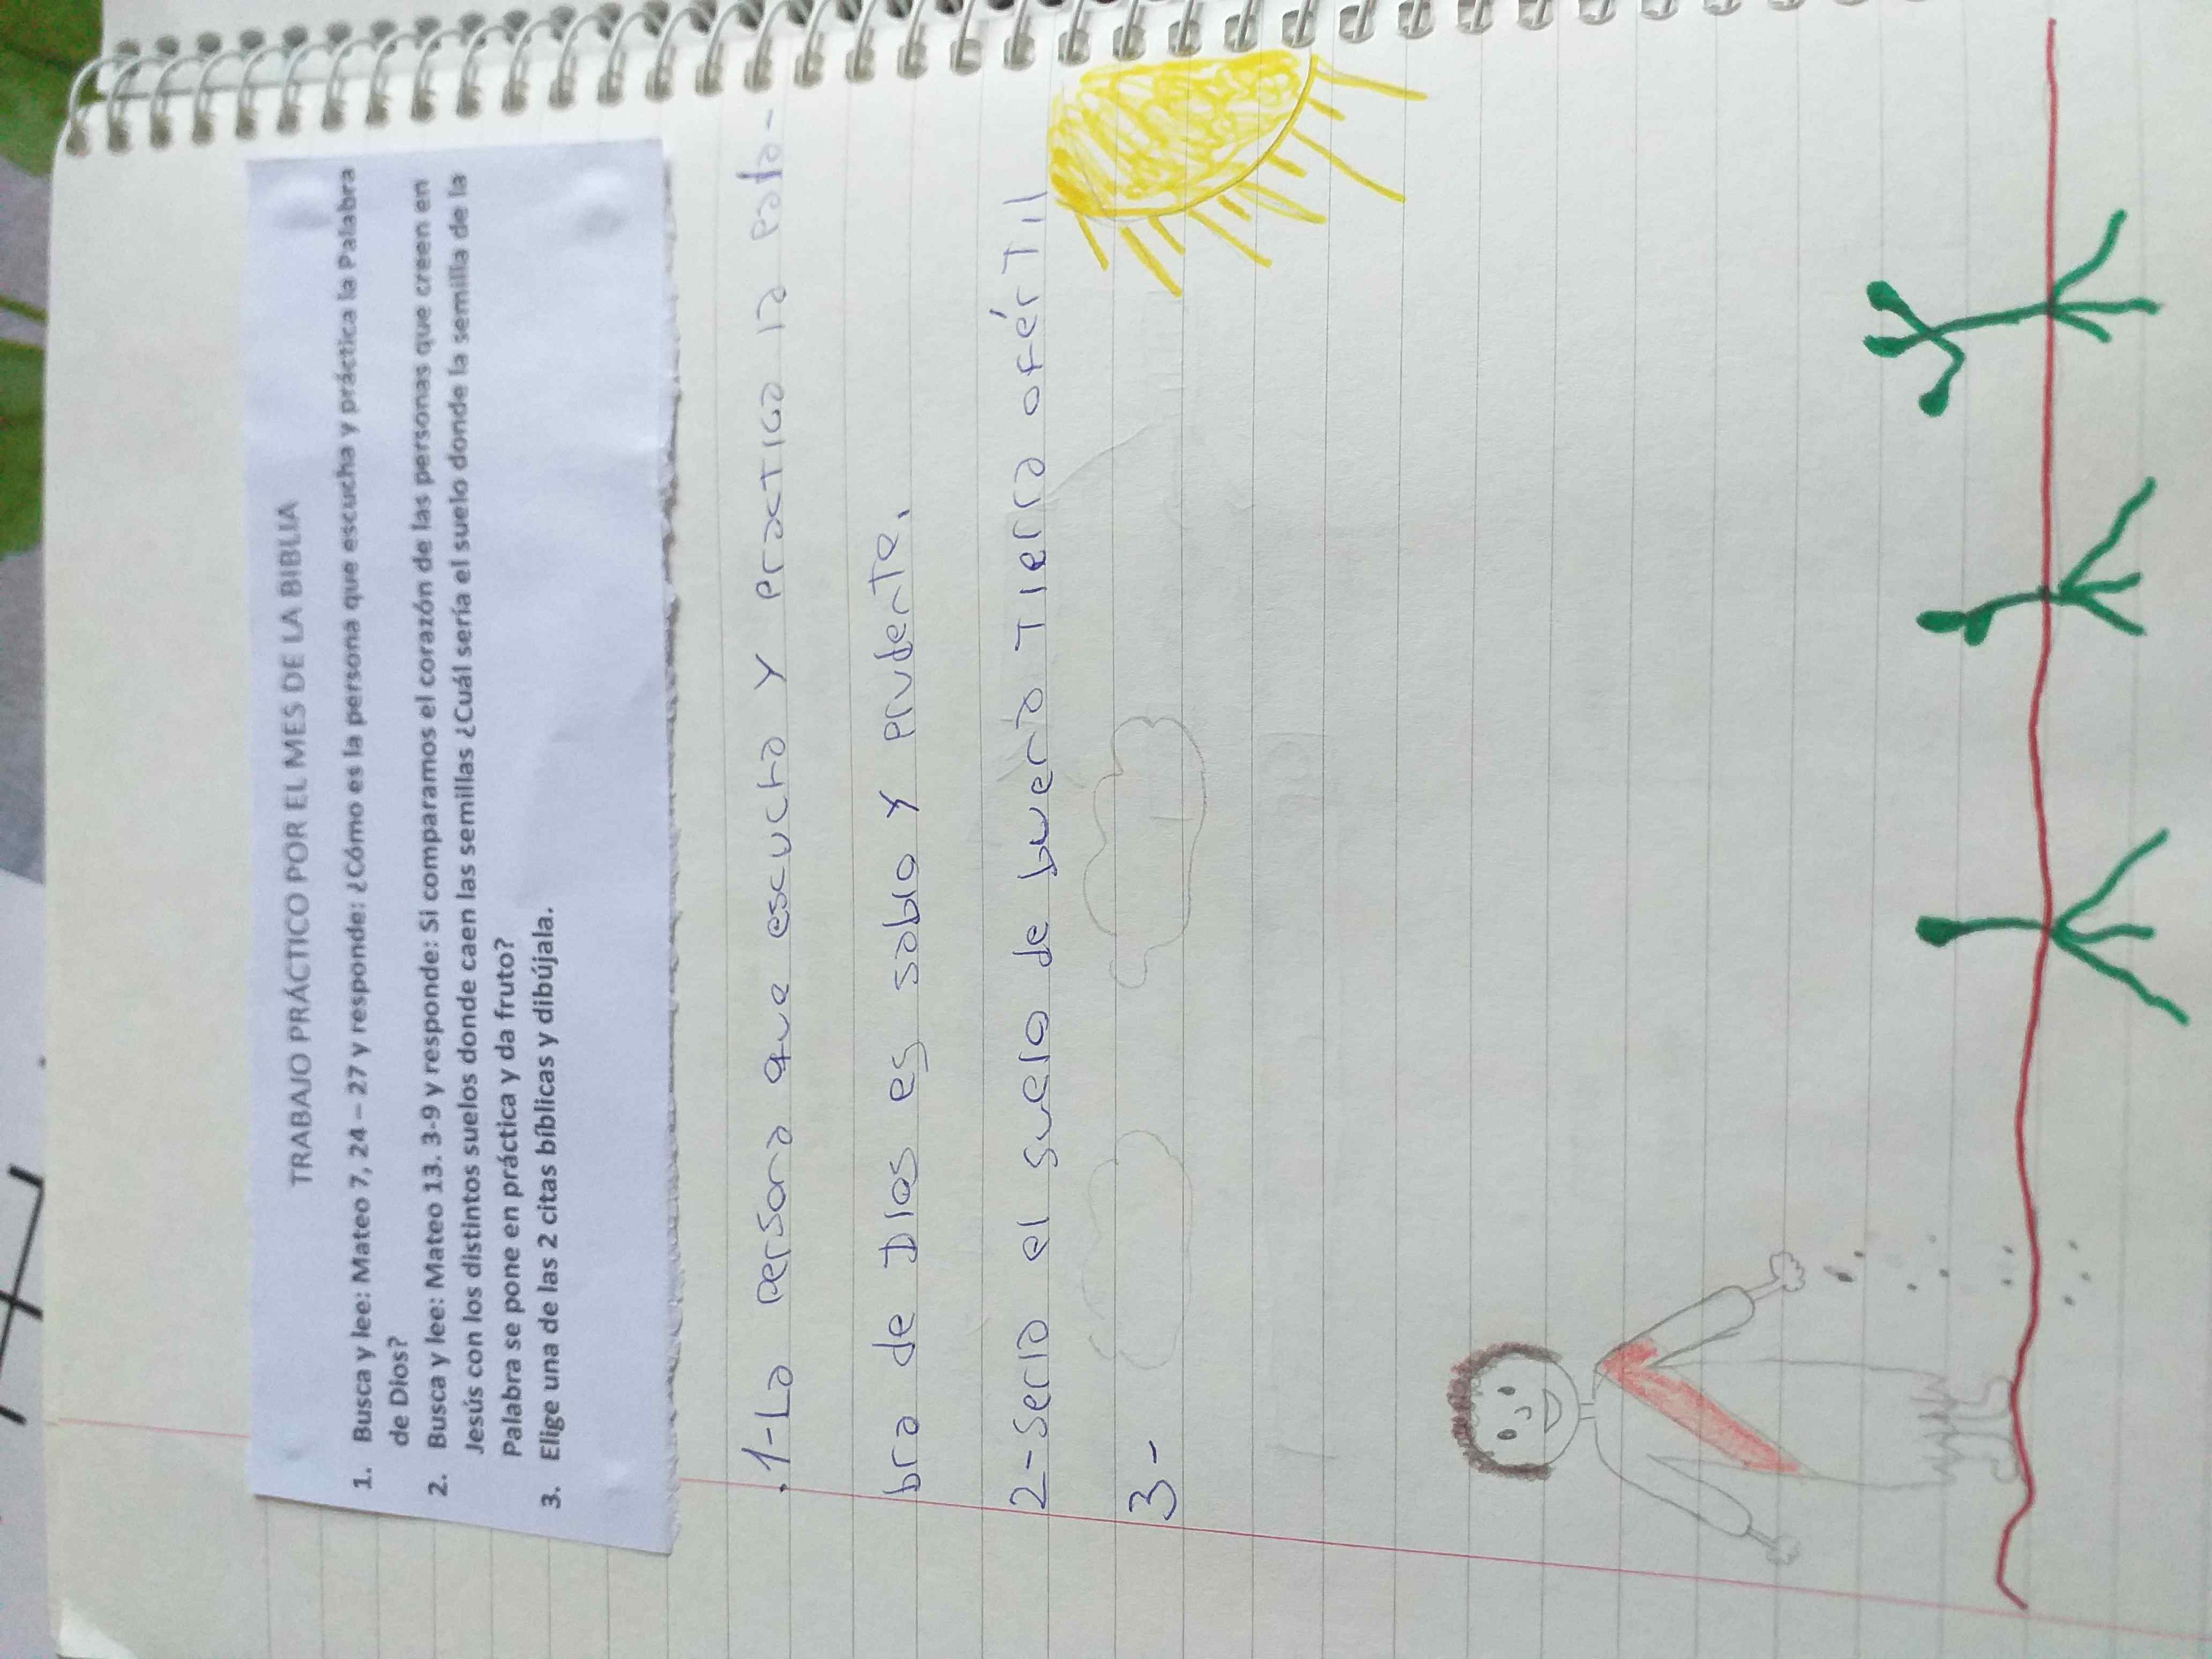 TRABAJO PRÁCTICO POR EL MES DE LA BIBLIA
1. Busca y lee: Mateo 7, 24 – 27 y responde: ¿Cómo es la persona que escucha y práctica la Palabra
de Dios?
2. Busca y lee: Mateo 13. 3-9 y responde: Si comparamos el corazón de las personas que creen en
Jesús con los distintos suelos donde caen las semillas ¿Cuál sería el suelo donde la semilla de la
Palabra se pone en práctica y da fruto?
3. Elige una de las 2 citas bíblicas y dibújala.
.1-La persona que escucha y practica la pala-
bra de Dios es sabio y prudente.
2-Seria el suelo de buena tierra o fértil
3-